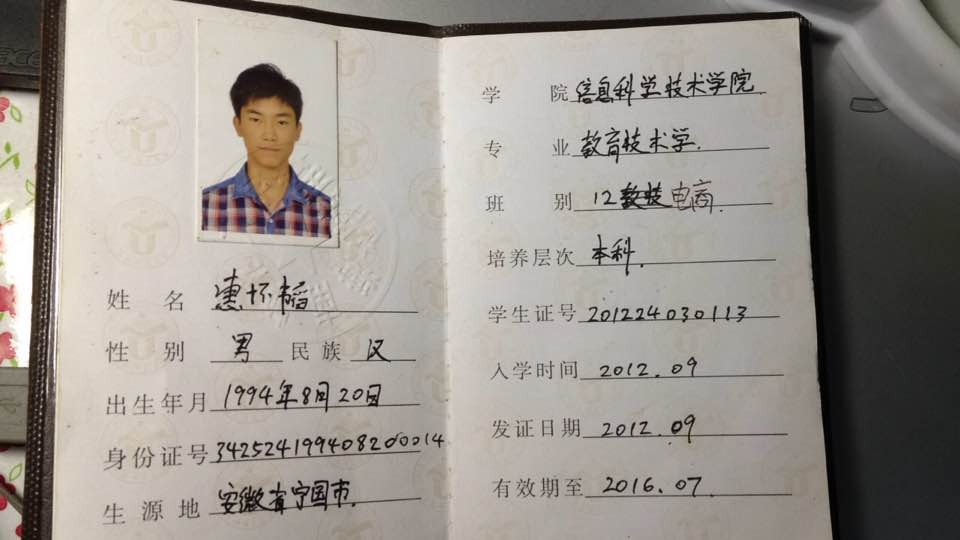 姓名 惠怀韬
性别 男 民族 汉
出生年月 1994年8月20日
身份证号 342524199408200014
生源地 安徽省宁国市.
学院 信息科学技术学院
专业 教育技术学.
班别 12教技电商.
培养层次 本科.
学生证号 201224030113
入学时间 2012.09
发证日期 2012.09
有效期至 2016.07.